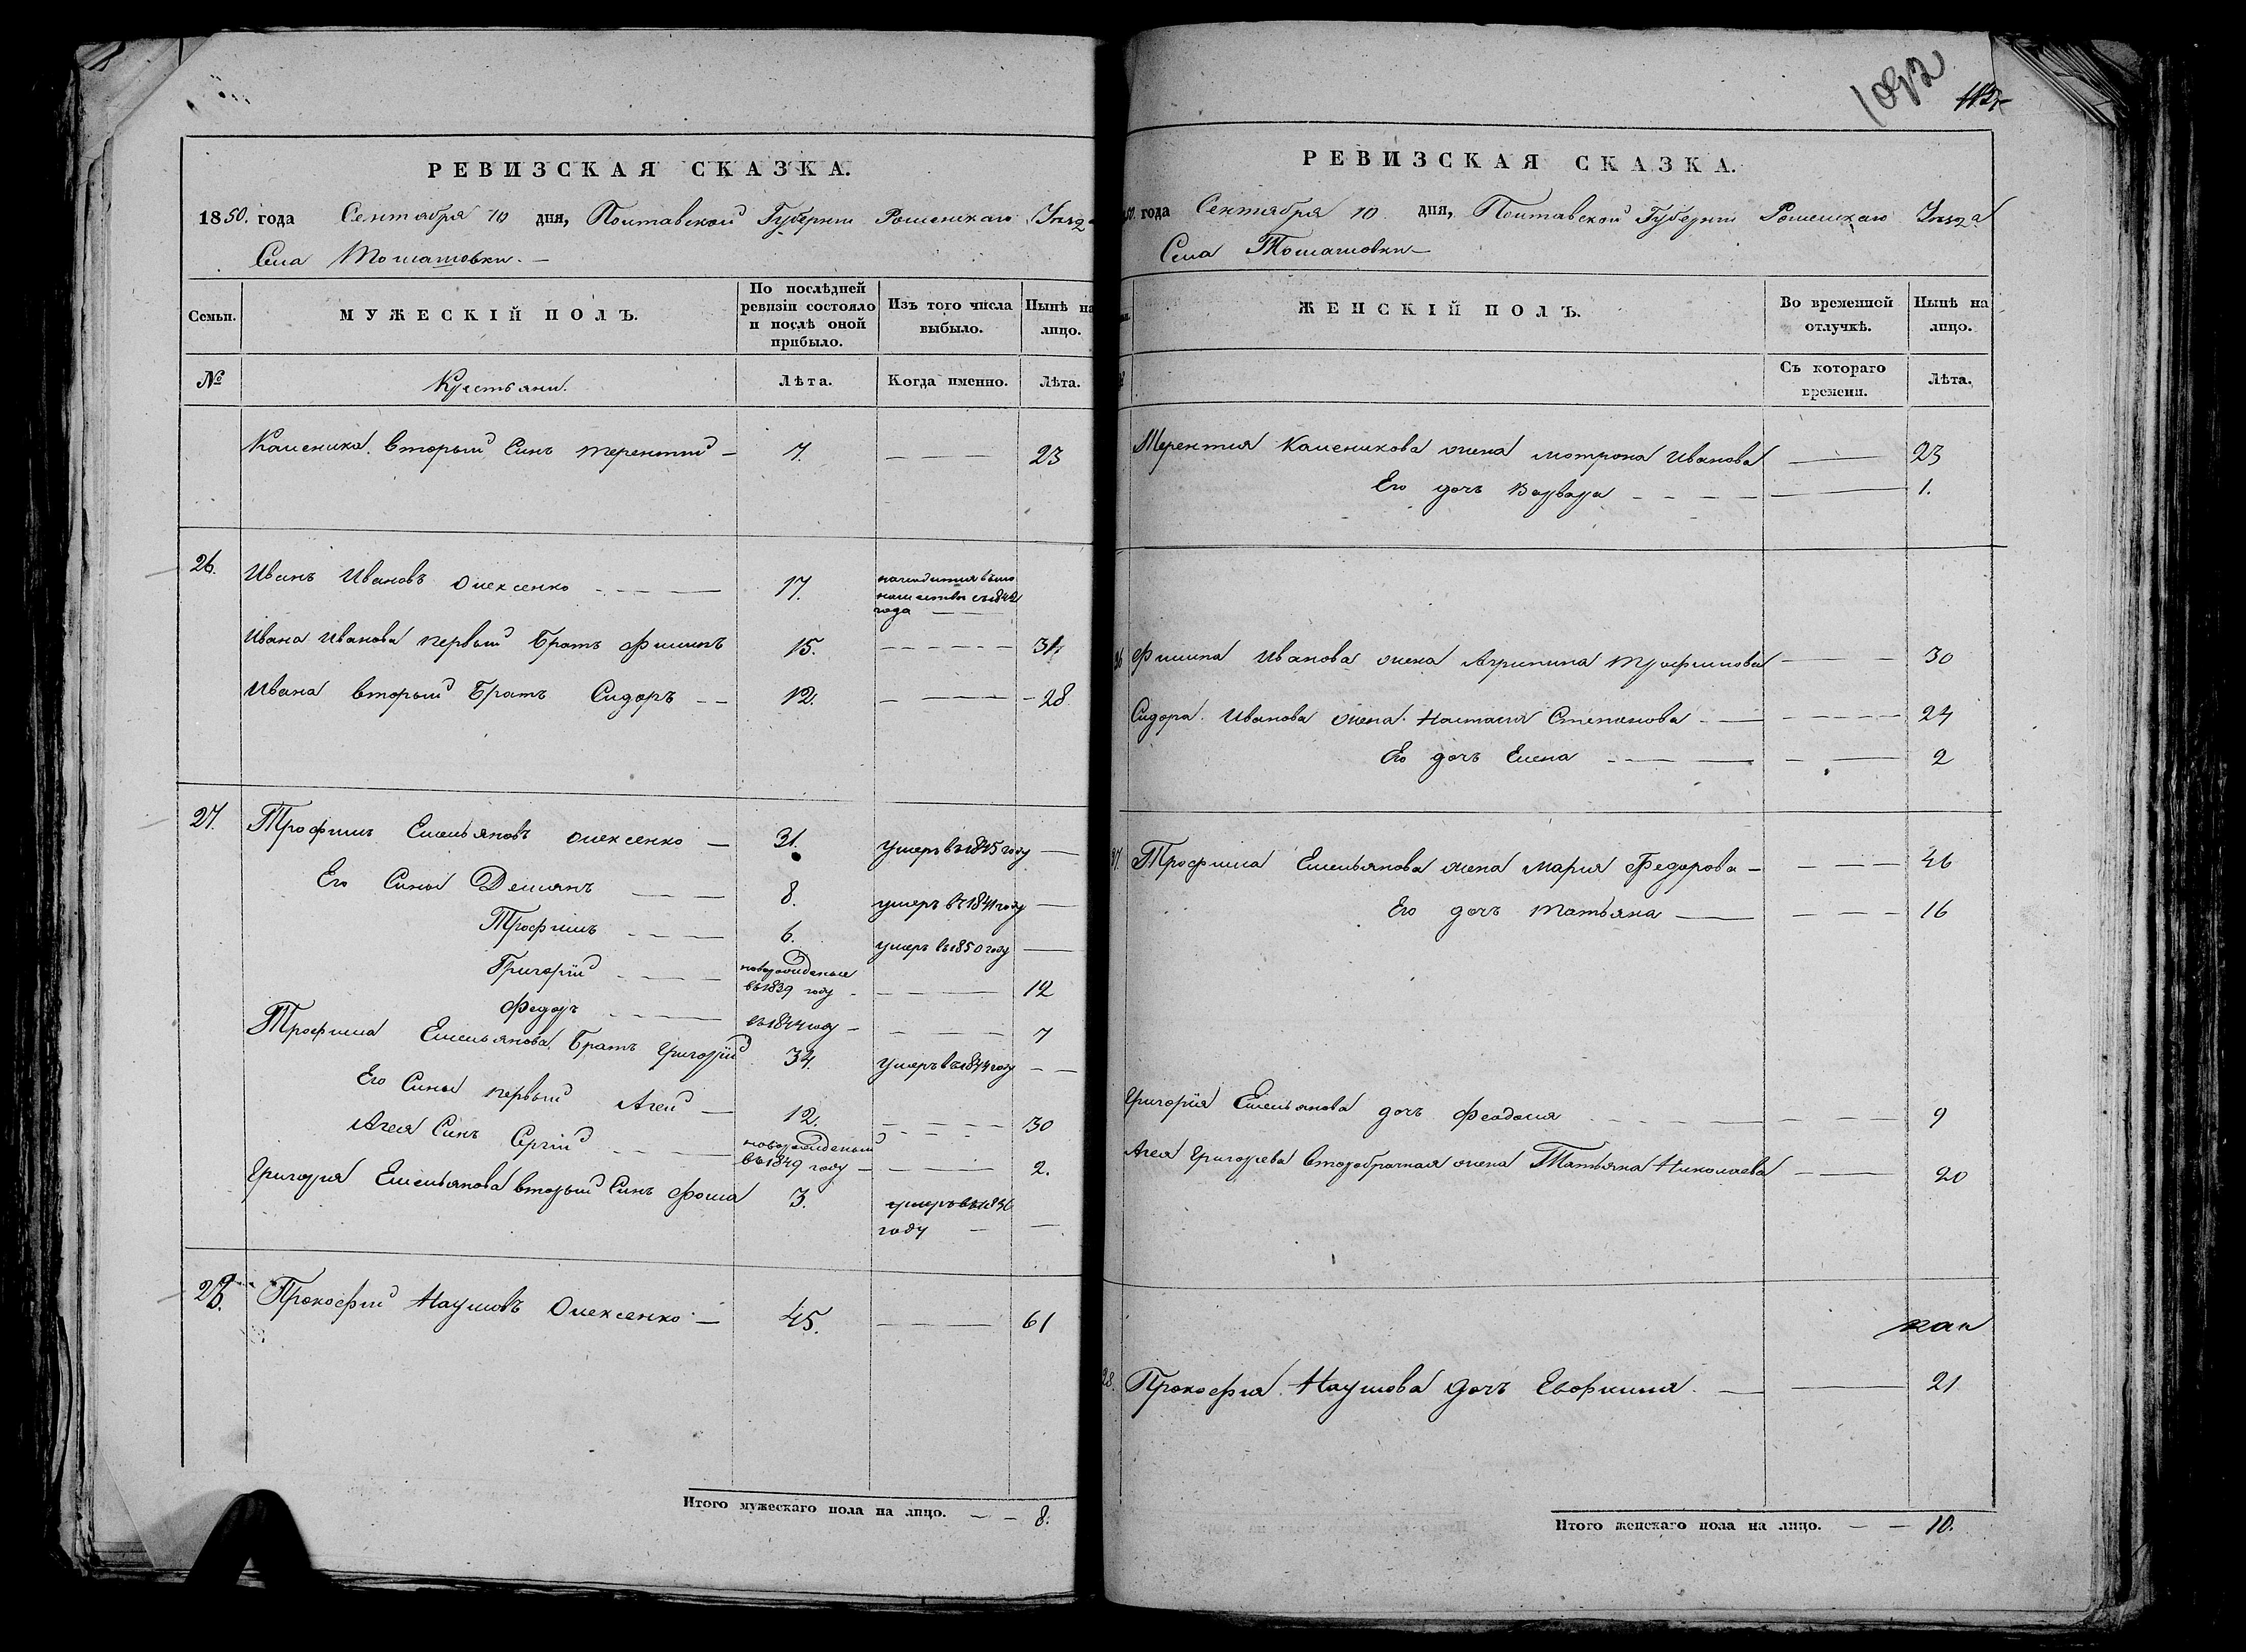 1092
РЕВИЗСКАЯ СКАЗКА.
1850. года Сентября 10 дня, Полтавской Губернии Роменскаго Уезда
Села Томашовки.
Семьи. МУЖЕСКІЙ ПОЛЪ. По послѣдней ревизіи состояло и послѣ оной прибыло. Изъ того числа выбыло. Нынѣ на лицо.
№ Крестьяни. Лѣта. Когда именно. Лѣта.
Каленика второй Синъ терентий 7. 23
26. Иванъ Ивановъ Олексенко 17. 1842 года
Ивана Иванова первый Братъ Филипъ 15. 31
Ивана второй Братъ Сидоръ 12. 28
27. Трофимъ Емельяновъ Олексенко 31. умеръ въ 1845 году
Его Сины Демянъ 8. умеръ въ 1841 году
Трофимъ 6. умеръ въ 1850 году
Григорій новорожденые въ 1839 году 12
Федоръ въ 1844 году 7
Трофима Емельянова Братъ Григорій 34. умеръ въ 1844 году
Его Сины первый Агей 12. 30
Агея Синъ Сергій новорожденый въ 1849 году 2.
Григория Емельянова второй Синъ Фома 3. умеръ въ 1836 году
28. Прокофий Наумовъ Олексенко 45. 61
Итого мужескаго пола на лицо. 8.
РЕВИЗСКАЯ СКАЗКА.
50. года Сентября 10 дня, Полтавской Губерніи Роменскаго Уезда
Села Томашовки
ЖЕНСКІЙ ПОЛЪ. Во временной отлучкѣ. Нынѣ на лицо.
Съ котораго времени. Лѣта.
Терентия Каленикова жена мотрона Иванова 23
Его дочь Варвара 1.
26 Филипа Иванова жена Агрипина Трофимова 30
Сидора Иванова жена Настасия Степанова 24
Его дочь Елена 2
27. Трофима Емельянова жена Мария Федорова 46
Его дочь Татьяна 16
Григорія Емельянова дочь Феодосия 9
Агея Григорьева второбрачная жена Татьяна Николаева 20
28. Прокофия Наумова дочь Евфимия 21
Итого женскаго пола на лицо. 10.